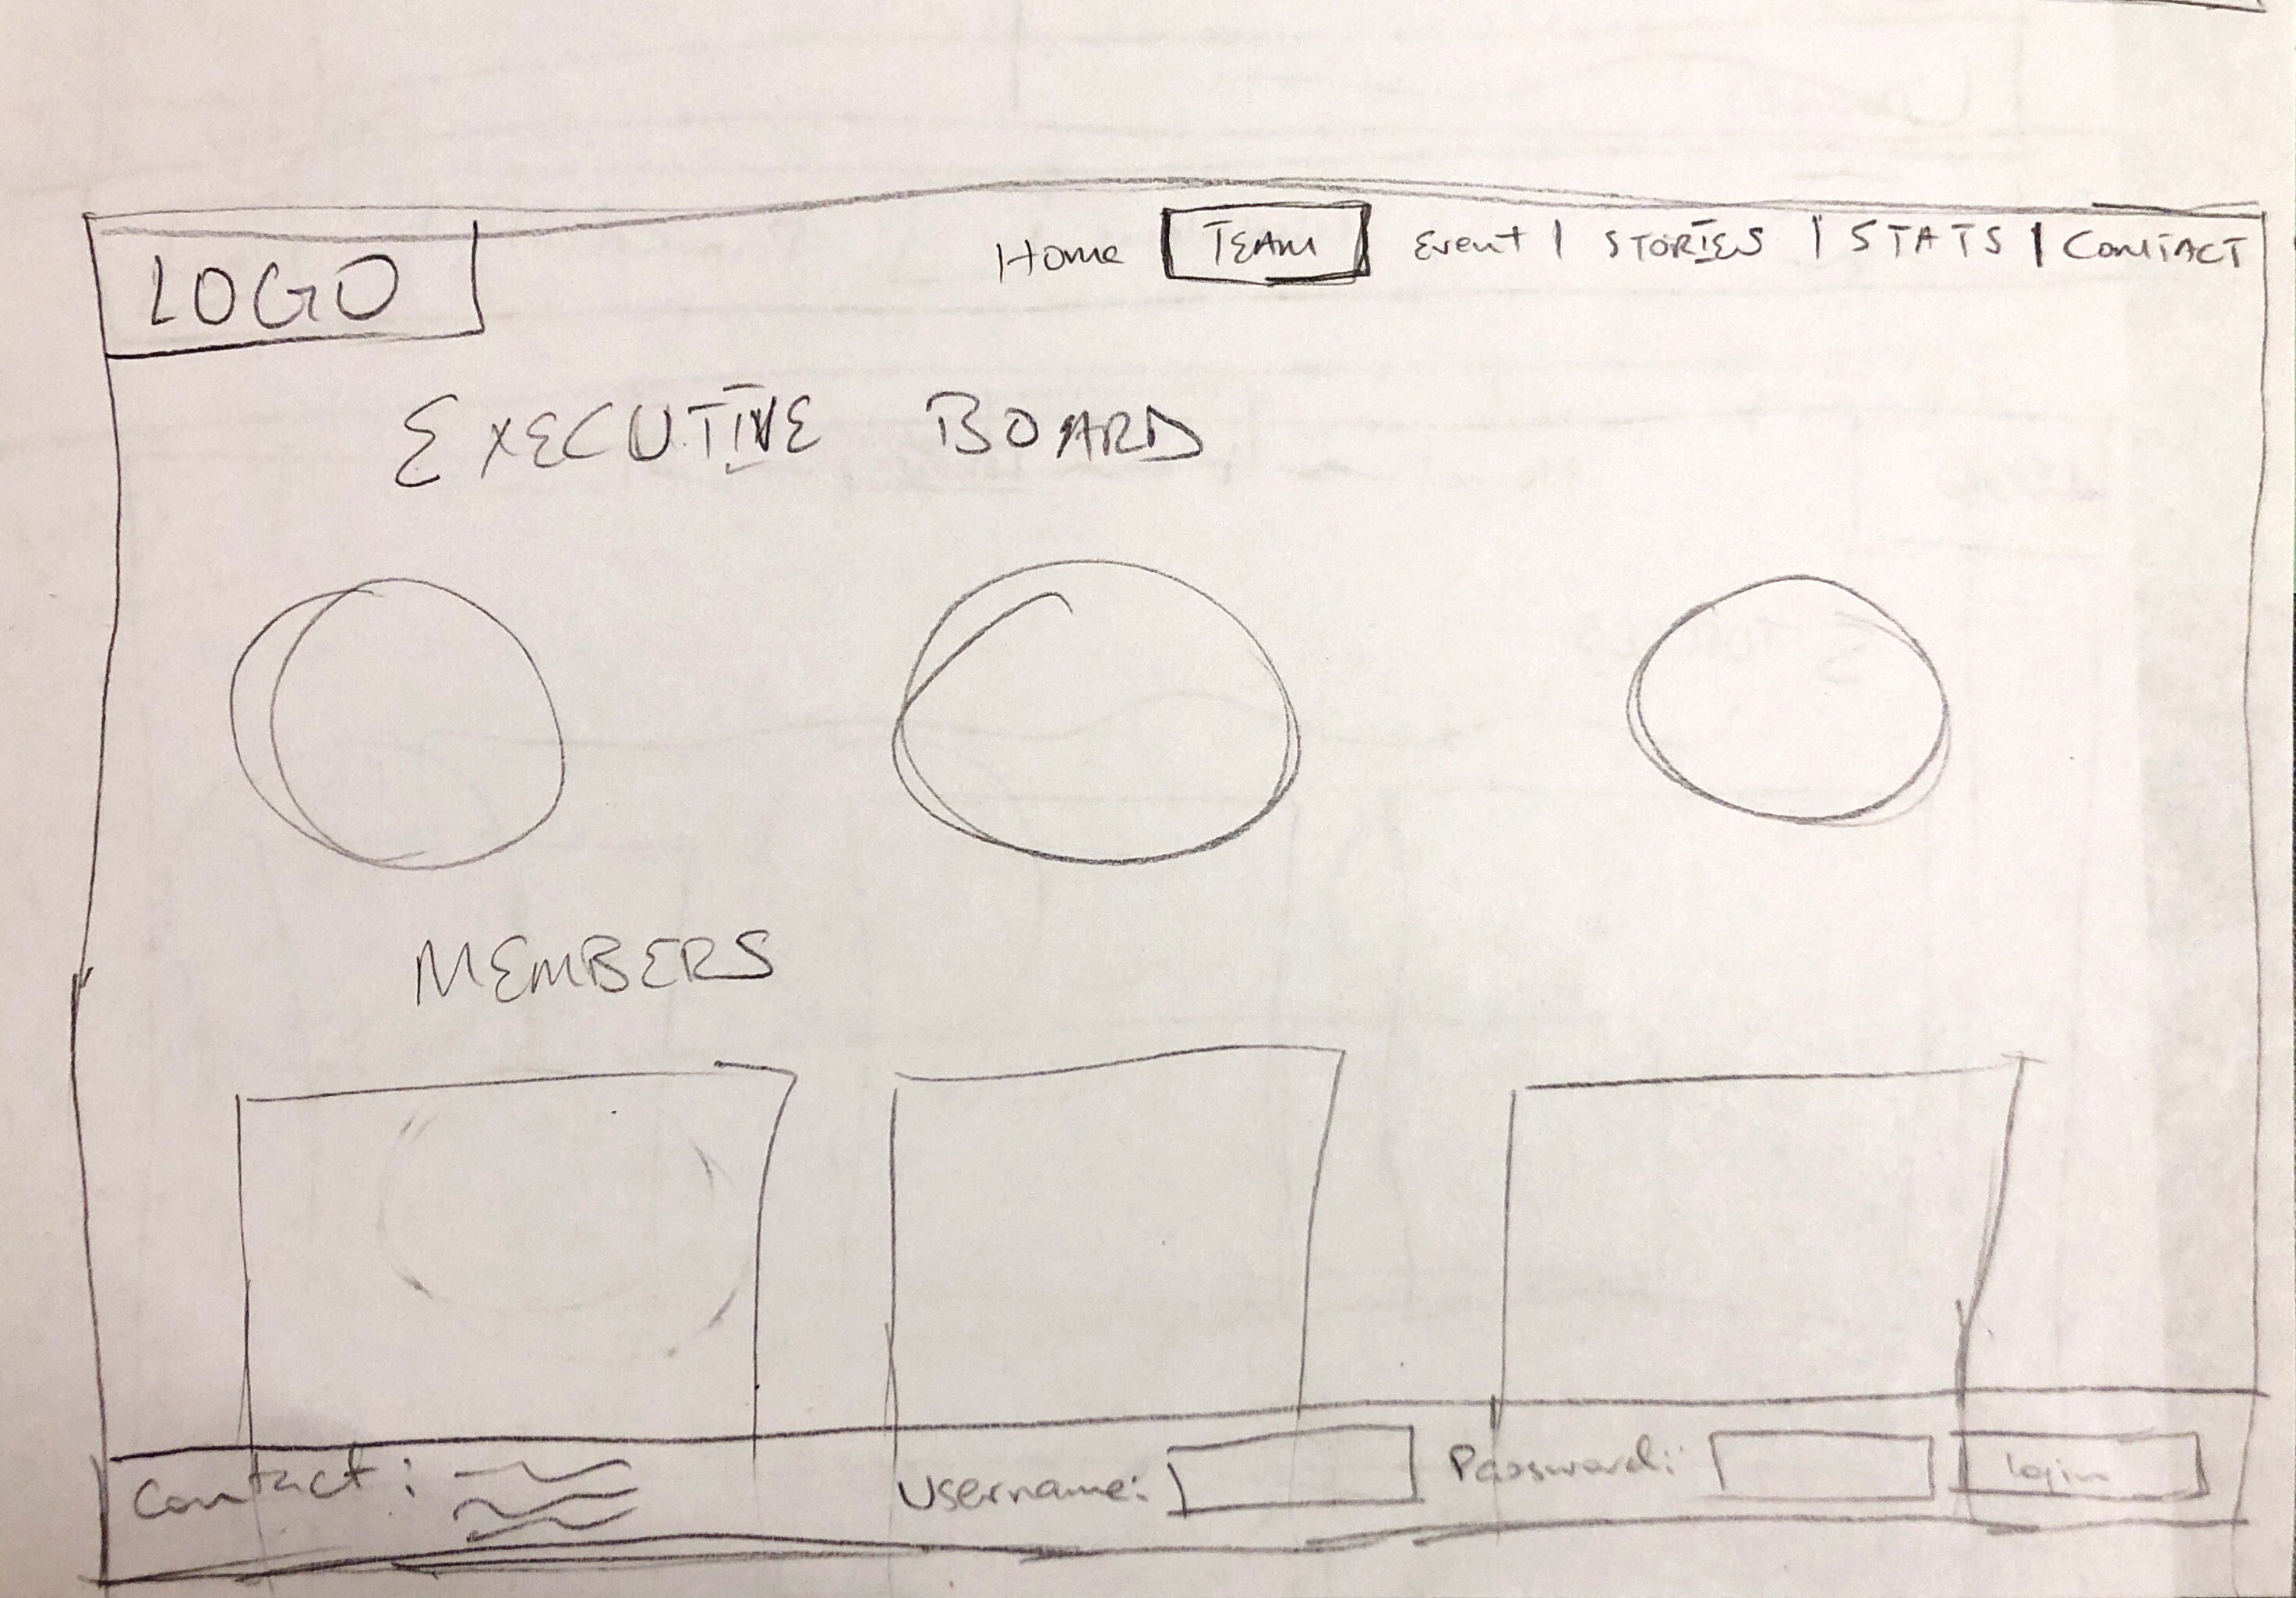 LOGO
Home TEAM Event | STORIES | STATS | CONTACT
EXECUTIVE BOARD
MEMBERS
Contact: Username: Password: Login